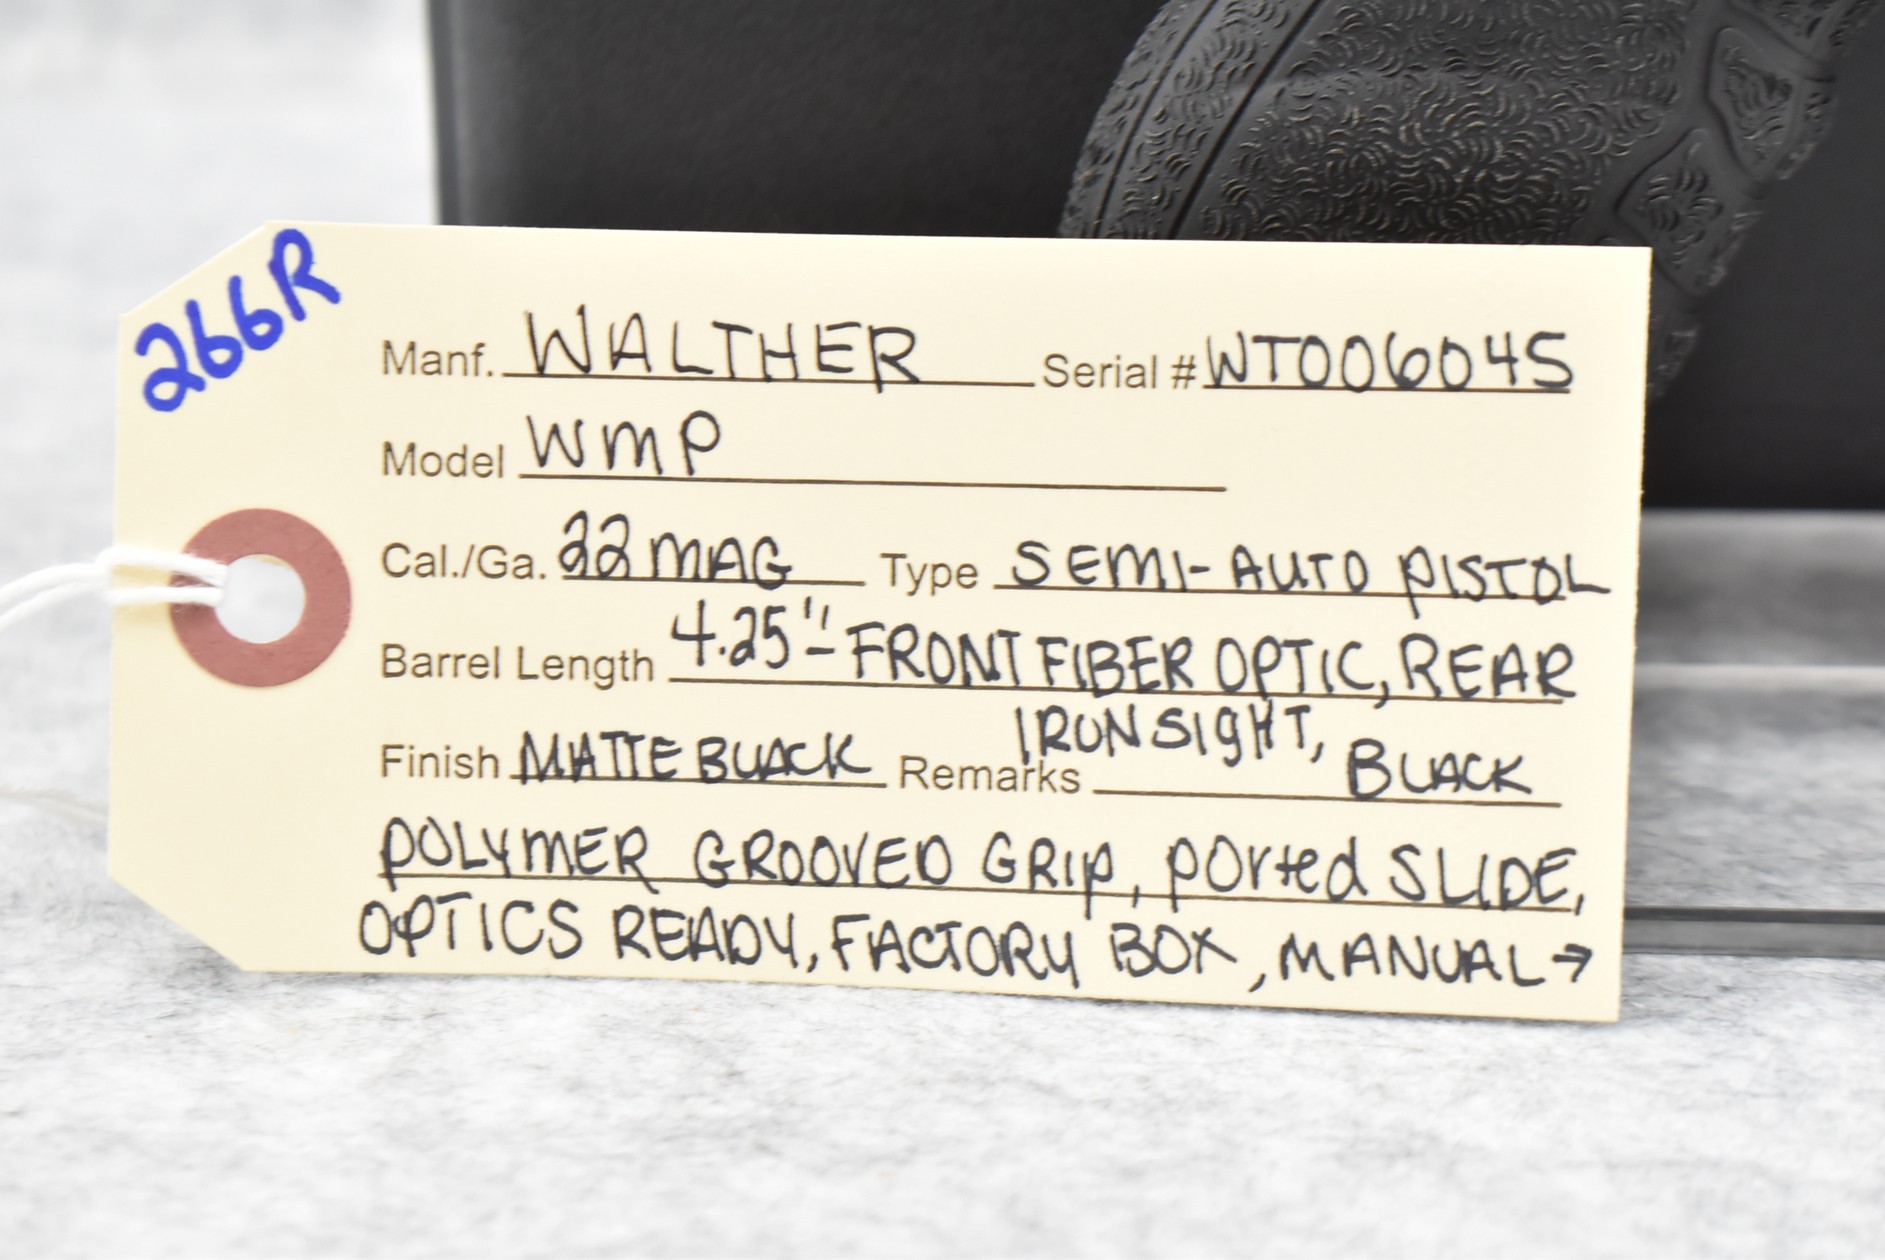 266R
Manf. WALTHER Serial # WT006045
Model WMP
Cal./Ga. 22 MAG Type SEMI-AUTO PISTOL
Barrel Length 4.25"- FRONT FIBER OPTIC, REAR
IRON SIGHT,
Finish MATTE BLACK Remarks BLACK
POLYMER GROOVED GRIP, PORted SLIDE,
OPTICS READY, FACTORY BOX, MANUAL →